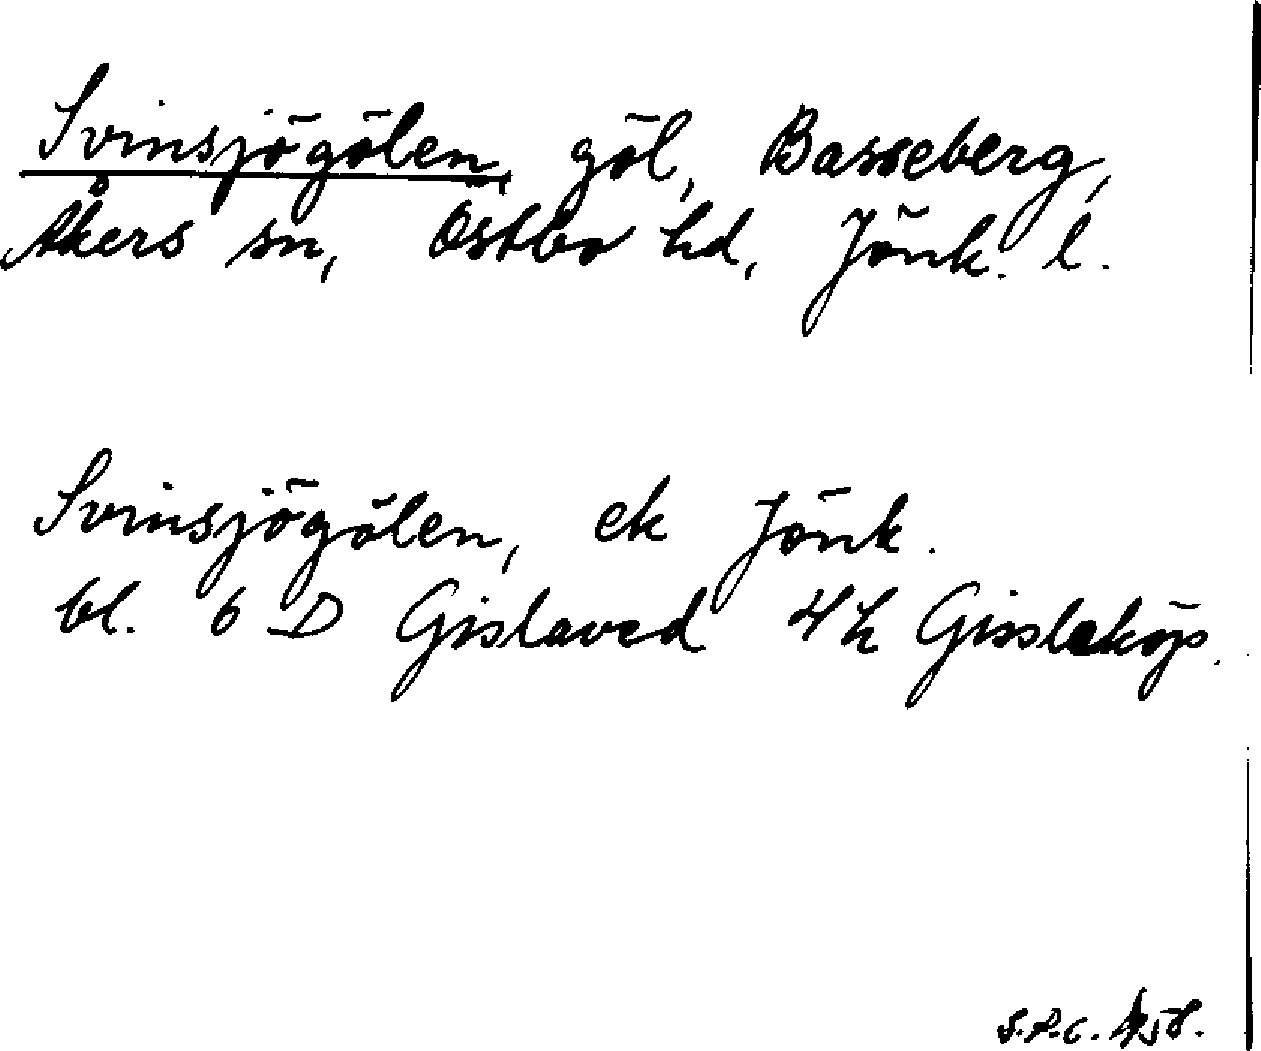 Svinsjögölen, göl, Basseberg,
Åkers sn, Östbo hd, Jönk. l.
Svinsjögölen, ek Jönk.
bl. 6 D Gislaved 4 h Gissleköp.